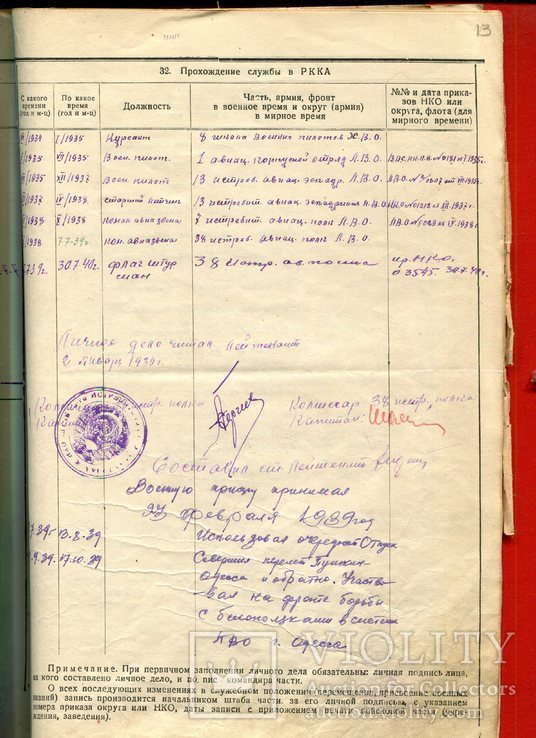 13
32. Прохождение службы в РККА
С какого времени (год и м-ц)
По какое время (год и м-ц)
Должность
Часть, армия, фронт в военное время и округ (армия) в мирное время
№№ и дата приказов НКО или округа, флота (для мирного времени)
/1934 I/1935 Курсант 8 школа Военных пилотов Х.В.О.
/1935 VII/1935 Воен. пилот 1 авиац. отряд Л.В.О.
/1935 XI/1937 Воен. пилот 13 истреб. авиац. эскадр. Л.В.О.
/1937 IV/1938 старший летчик 13 истребит. авиац. эскадрилья Л.В.О.
/1938 /1938 авиазвена 7 истребит. авиац. полк Л.В.О.
/1938 7-7-39г. ком. авиазвена 38 истреб. авиац. полк Л.В.О.
7-39г. 30.7.40г. флаг штурман 38 истр. ав. полка пр. НКО 03545 30.7.40г.
Личное дело читал лейтенант
2 января 1939г.
истр. полка
Комиссар 38 истр. полка
Капитан
Составил ст. лейтенант
Военную присягу принимал
23 февраля 1939 год
7.39г 13.8.39 Использовал очередной отпуск
.9.39. 17.10.39 Совершил перелет Пушкин
Одесса и обратно. Участво
вал на фронте борьбы
с белополяками в системе
г. Одесса
VIOLITY
Auction for Collectors
auction.violity.com
Примечание. При первичном заполнении личного дела обязательны: личная подпись лица, на кого составлено личное дело, и подпись командира части.
О всех последующих изменениях в служебном положении (перемещения, присвоение военных званий) запись производится начальником штаба части, за его личной подписью, с указанием номера приказа округа или НКО, даты записи с приложением печати войсковой части (учреждения, заведения).